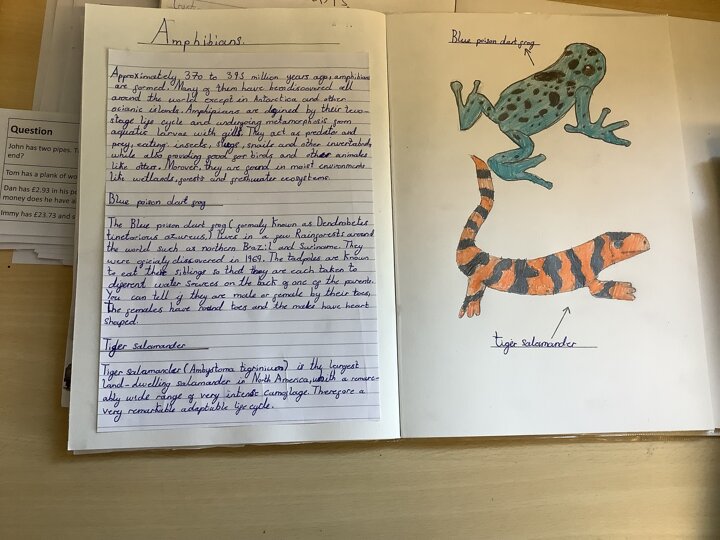 Amphibians.
Approximately 370 to 395 million years ago, amphibians
are formed. Many of them have been discovered all
around the world except in Antarctica and other
ocianic islands. Amphipians are defined by their two-
stage life cycle and undergoing metamorphosis from
aquatic larvae with gills. They act as predator and
prey, eating insects, slugs, snails and other invertabrats,
while also providing food for birds and other animales
like otters. Morover, they are found in moist enviroments
like wetlands, forests and freshwater ecosystems.
Blue poison dart frog
The Blue poison dart frog (formaly known as Dendrobates
tinctorious azureus,) lives in a few Rainforests around
the world such as northern Brazil and Suriname. They
were oficialy discovered in 1969. The tadpoles are known
to eat their siblings so that they are each taken to
different water sources on the back of one of the parents.
You can tell if they are male or female by their toes,
the females have round toes and the males have heart
shaped.
Tiger salamander
Tiger salamander (Ambystoma tigrinium) is the largest
land-dwelling salamander in North America, with a remark-
ably wide range of very intense camoflage. Therefore a
very remarkable adaptable life cycle.
Blue poison dart frog
tiger salamander
Question
John has two pipes. T
end?
Tom has a plank of wo
Dan has £2.93 in his po
money does he have a
Immy has £23.73 and s